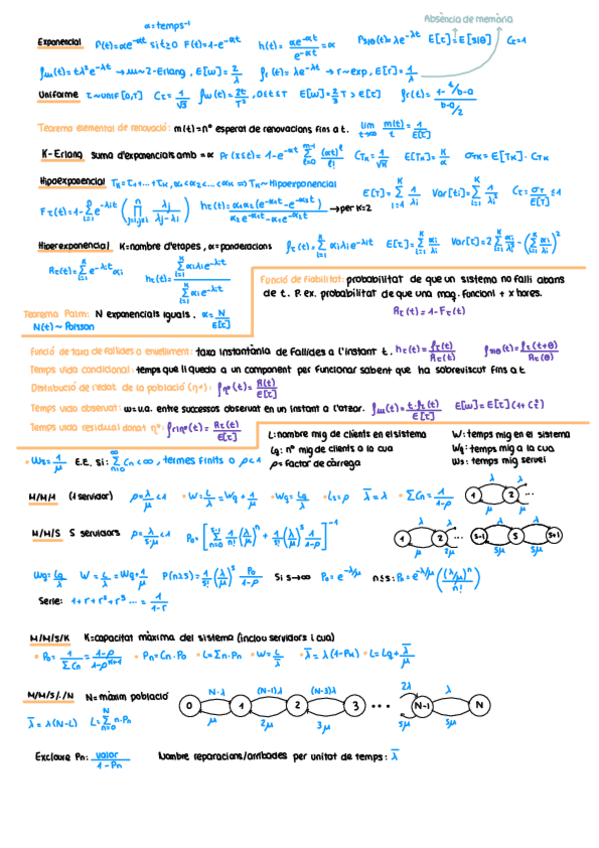 α=temps⁻¹
Absència de memòria
Exponencial f(t)=αe^-αt si t≥0 F(t)=1-e^-αt h(t)= αe^-αt / e^-αt =α f_S|θ(t)= λe^-λt E[τ]=E[S|θ] Cτ=1
f_ω(t)=tλ²e^-λt → ω~2-Erlang , E[ω]= 2/λ f_r(t)= λe^-λt → r~exp , E[r]= 1/λ
Uniforme τ~UNIF[0,T] Cτ= 1/√3 f_ω(t)= 2t/T² , 0≤t≤T E[ω]= 2/3 T > E[τ] f_r(t)=
Teorema elemental de renovació: m(t)=nº esperat de renovacions fins a t. lim t→∞ m(t)/t = 1/E[τ]
K-Erlang suma d'exponencials amb = α
Hipoexponencial T_K=τ₁+...+τ_K , α₁<α₂<...<α_K => T_K~Hipoexponencial E[τ]= Σ 1/λ Var[ti]= Σ 1/λ² Cτ= στ/E[τ] ≤1
→per K=2
Hiperexponencial K=nombre d'etapes , α=ponderacions f_τ(t)= Σ αi λi e^-λit E[τ]= Σ αi/λi Var[τ]= 2 Σ αi/λi² - (Σ αi/λi)²
Rτ(t)= Σ e^-λit αi hτ(t)= Σ αi λi e^-λit / Σ αi e^-λit
Funció de fiabilitat: probabilitat de que un sistema no falli abans
de t. P. ex. probabilitat de que una maq. funcioni + x hores.
Rτ(t) = 1-Fτ(t)
Teorema Palm: N exponencials iguals. α= N/E[τ]
N(t) ~ Poisson
Funció de taxa de fallides o envelliment: taxa instantània de fallides a l'instant t. hτ(t)= fτ(t)/Rτ(t) f_S|θ(t)= fτ(t+θ)/Rτ(θ)
Temps vida condicional: temps que li queda a un component per funcionar sabent que ha sobreviscut fins a t
Distribució de l'edat de la població (nº): f_nº(t)= R(t)/E[τ]
Temps vida observat: ω=v.a. entre successos observat en un instant a l'atzar. f_ω(t)= t·fτ(t)/E[τ] E[ω]=E[τ](1+Cτ²)
Temps vida residual donat nº: f_r|nº(t)= Rτ(t)/E[τ]
L:nombre mig de clients en el sistema W:temps mig en el sistema
Lq: nº mig de clients a la cua Wq:temps mig a la cua
ρ=factor de càrrega Ws:temps mig servei
• Ws= 1/μ E.E. si: Σ Cn <∞ , termes finits o ρ<1
M/M/1 (1 servidor) ρ= λ/μ <1 • W= L/λ = Wq+ 1/μ • Wq= Lq/λ • Ls=ρ λ̄=λ • ΣCn= 1/1-ρ
1 2 ... λ λ μ μ
M/M/S S servidors ρ= λ/s·μ <1 P₀= [ Σ 1/n! (λ/μ)^n + 1/s! (λ/μ)^s 1/1-ρ ]^-1
1 2 ... S-1 S S+1 λ λ λ λ μ 2μ Sμ Sμ
Wq= Lq/λ W= L/λ = Wq+ 1/μ P(n≥s)= 1/s! (λ/μ)^s P₀/1-ρ Si s→∞ P₀= e^-λ/μ n≤s: Pn= e^-λ/μ ((λ/μ)^n / n!)
Serie: 1+r+r²+r³ ... = 1/1-r
M/M/S/K K=capacitat màxima del sistema (inclou servidors i cua)
• P₀= 1/ΣCn = 1-ρ/1-ρ^K+1 • Pn=Cn·P₀ • L=Σn·Pn • W= L/λ̄ • λ̄=λ(1-Pk) • L=Lq+ λ̄/μ
M/M/S/./N N=màxim població
N·λ (N-1)λ (N-3)λ 2λ λ
0 1 2 3 ... N-1 N
μ 2μ 3μ sμ sμ
λ̄=λ(N-L) L= Σ n·Pn
Excloure Pn: valor/1-Pn Nombre reparacions/arribades per unitat de temps: λ̄